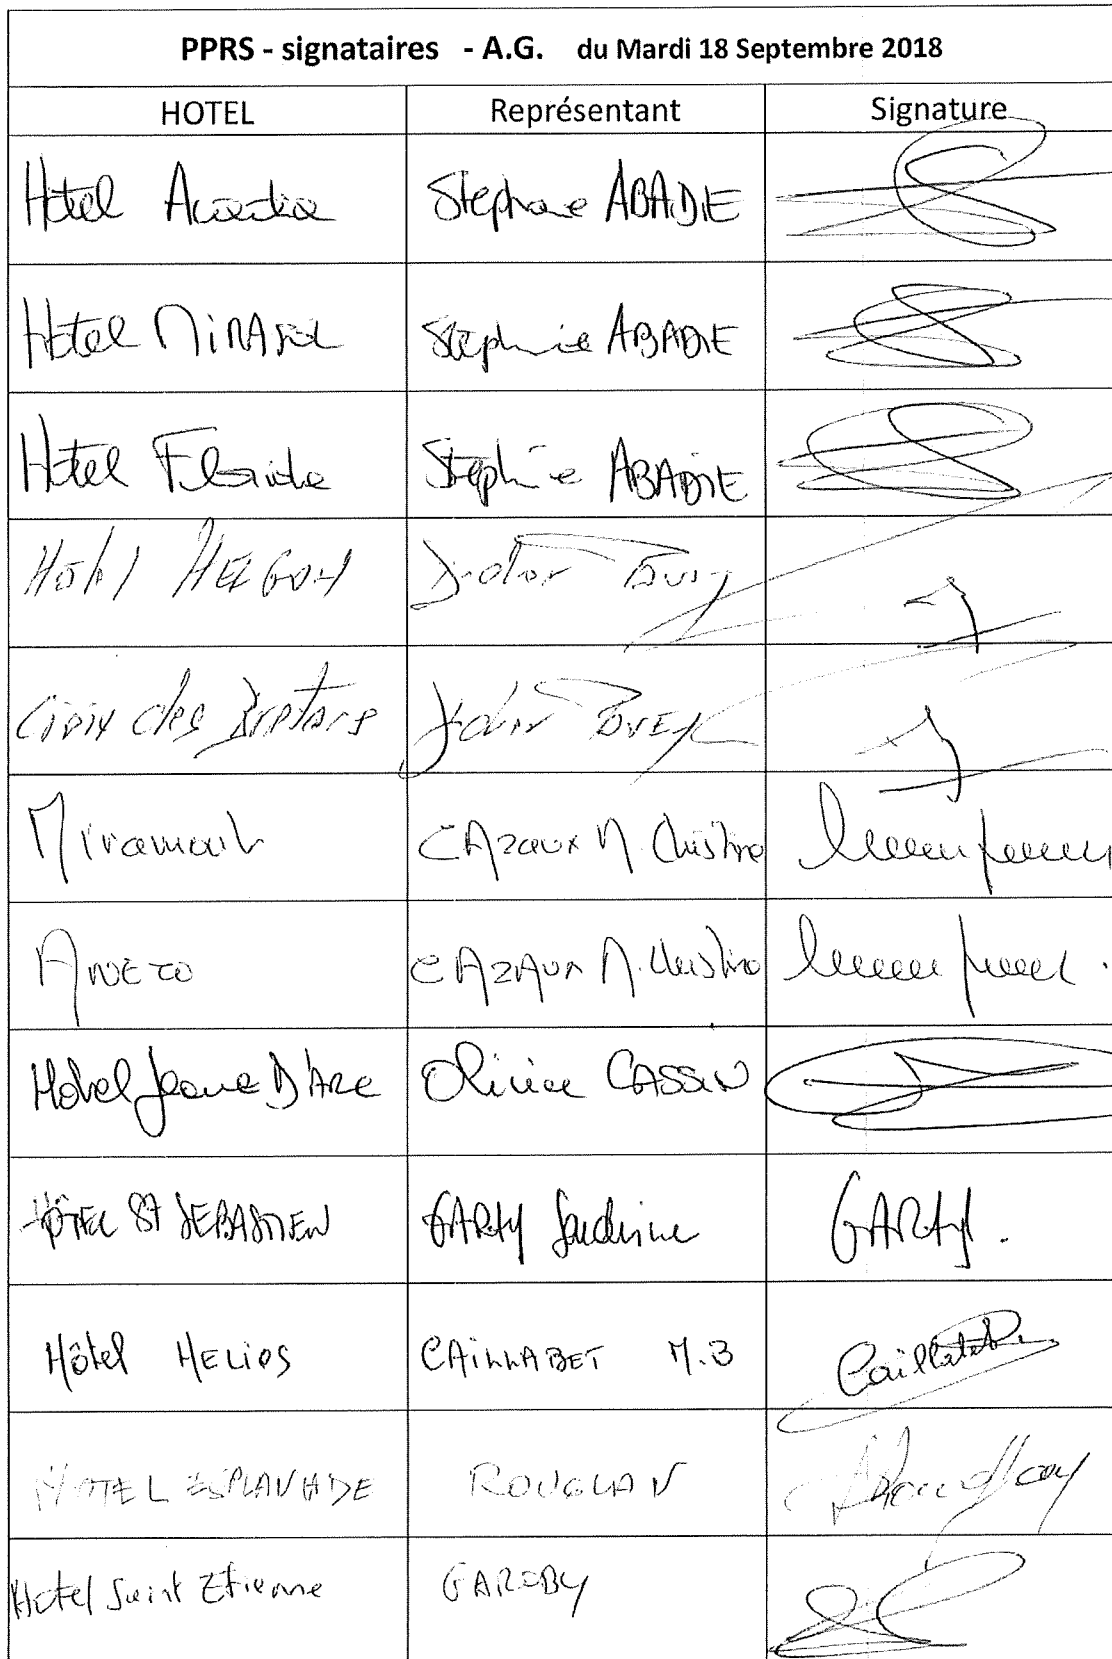 PPRS - signataires - A.G. du Mardi 18 Septembre 2018
HOTEL Représentant Signature
Hotel Acadia Stephane ABADIE
Hotel MiRAsol Stéphanie ABADIE
Hotel Floride Stéphanie ABADIE
Hôtel HELGON Didier
Croix des Bretons Didier
Miramont CAzaux M. Christine
ANETO CAZAUX M. Christine
Hotel Jeanne D'ARC Olivier CASSIN
HÔTEL ST SEBASTIEN GARTY Sandrine GARTY.
Hôtel HELIOS CAILLABET M.B Caillabet
HOTEL ESPLANADE ROUGLAN
Hotel Saint Etienne